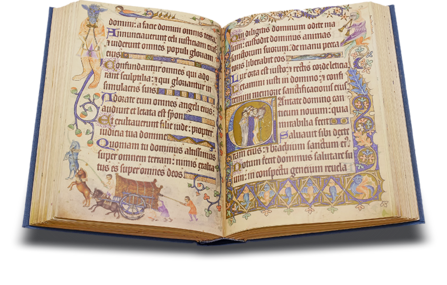 domini: a facie domini omnis terra
Annunciaverunt celi iusticiam eius: et
viderunt omnes populi gloriam eius
Confundantur omnes qui ado
rant sculptilia: et qui gloriantur in
simulacris suis
Adorate eum omnes angeli eius
audivit et letata est syon
Et exultaverunt filie iude: propter
iudicia tua domine
Quoniam tu dominus altissimus
super omnem terram: nimis exalta
tus es super omnes deos
Qui diligitis dominum odite
malum: custodit dominus animas
sanctorum suorum: de manu peccato
ris liberabit eos
Lux orta est iusto: et rectis corde leticia
Letamini iusti in domino: et confi
temini memorie sanctificationis eius
Cantate domino can
ticum novum: quia
mirabilia fecit
Salvavit sibi dextera
eius: et brachium sanctum eius
Notum fecit dominus salutare su
um: in conspectu gentium revela